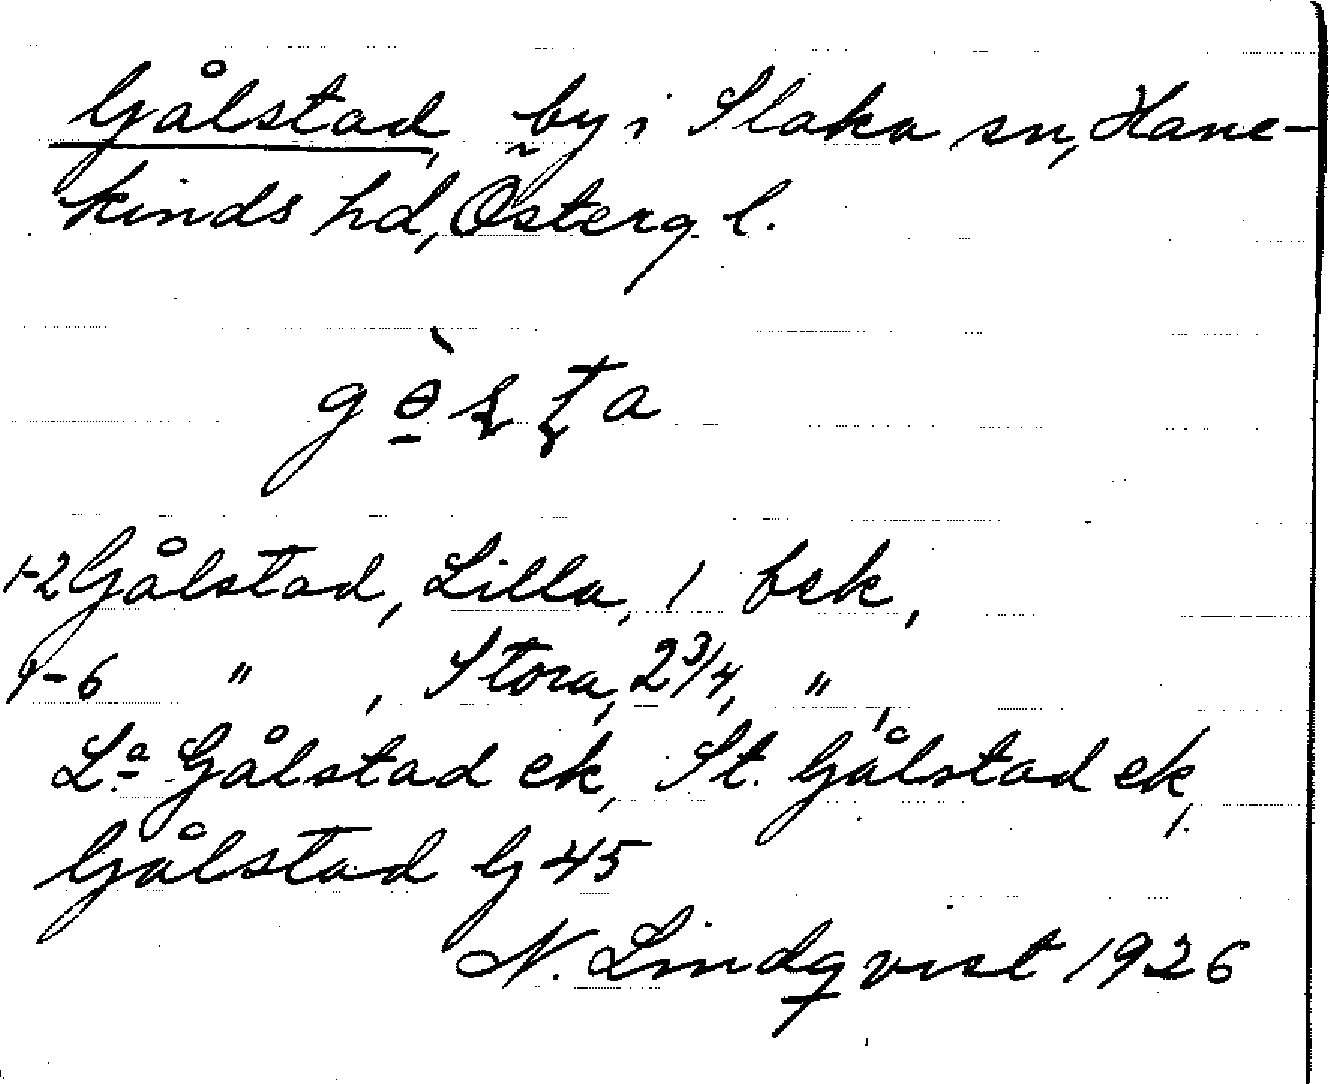 Gålstad, by i Slaka sn, Hane-
kinds hd, Östergl.
1-2 Gålstad, Lilla, 1 bek,
1-6 " , Stora, 2 3/4, " ,
La Gålstad ek, St. Gålstad ek,
Gålstad G 45
N. Lindqvist 1926